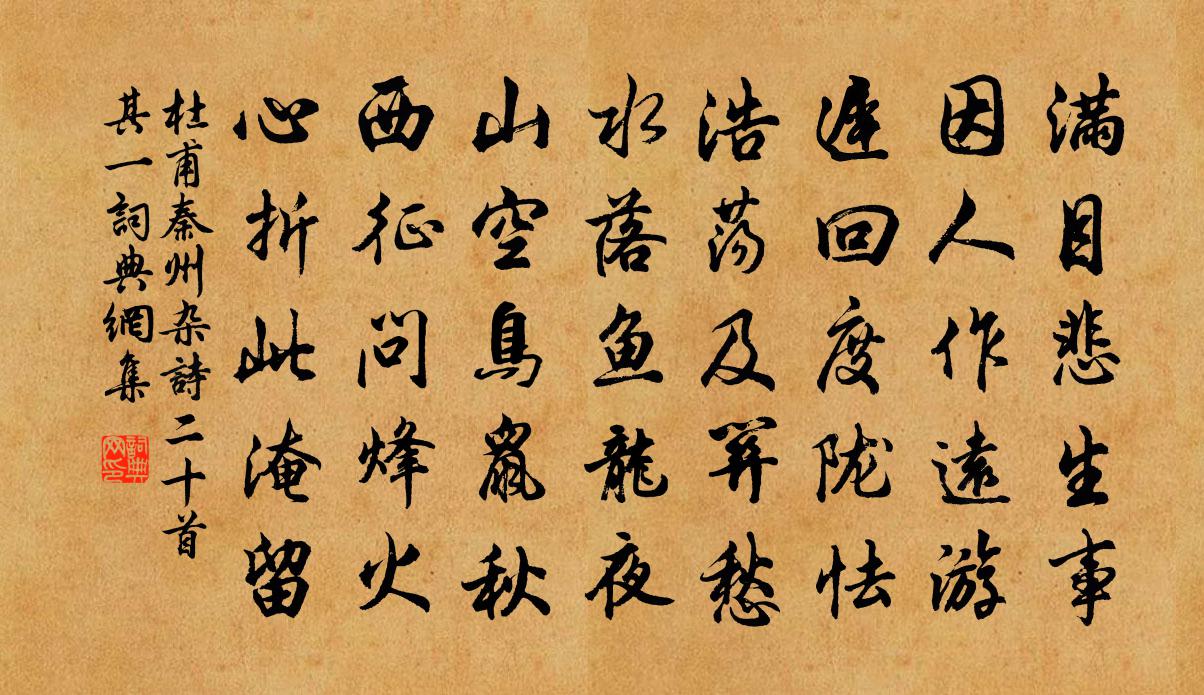 满目悲生事
因人作遠游
遲回度陇怯
浩荡及関愁
水落鱼龍夜
山空鳥鼠秋
西征问烽火
心折此淹留
杜甫秦州杂詩二十首
其一詞典網集
詞典网印